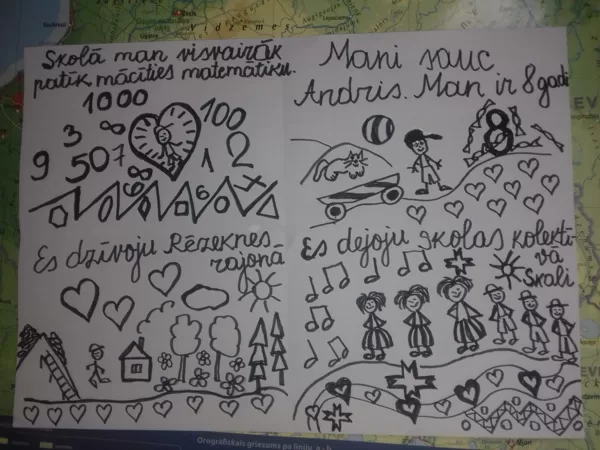 Skolā man visvairāk
patīk mācīties matemātiku.
1000
100
3
8
9
507
1
2
8
6
Mani sauc
Andris. Man ir 8 gadi
8
Es dzīvoju Rēzeknes
rajonā
Es dejoju skolas kolektī-
vā
Skali
Vidzemes
Orogrāfiskais griezums pa līniju